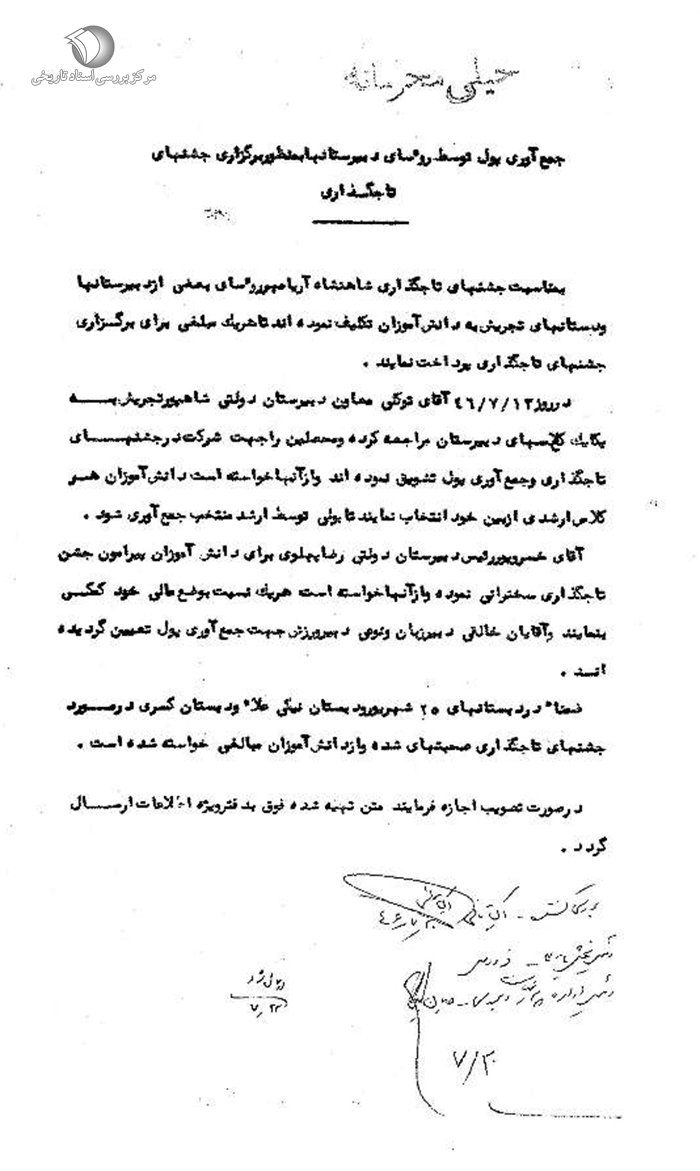 مرکز بررسی اسناد تاریخی
خیلی محرمانه
جمع آوری پول توسط روسای دبیرستانها بمنظور برگزاری جشنهای
تاجگذاری
بمناسبت جشنهای تاجگذاری شاهنشاه آریامهر روسای بعضی از دبیرستانها
ودبستانهای تجریش به دانش آموزان تکلیف نموده اند تا هریک مبلغی برای برگزاری
جشنهای تاجگذاری پرداخت نمایند .
در روز ۴۶/۷/۱۲ آقای توکلی معاون دبیرستان دولتی شاهپور تجریش به
یکایک کلاسهای دبیرستان مراجعه کرده ومحصلین را جهت شرکت در جشنهای
تاجگذاری وجمع آوری پول تشویق نموده اند وازآنها خواسته است دانش آموزان هر
کلاس ارشدی ازبین خود انتخاب نمایند تا پولی توسط ارشد منتخب جمع آوری شود .
آقای خسروپور رئیس دبیرستان دولتی رضا پهلوی برای دانش آموزان پیرامون جشن
تاجگذاری سخنرانی نموده وازآنها خواسته است هریک نسبت بوضع مالی خود کمکی
بنمایند وآقایان خالقی دبیر زبان و دبیر ورزش جهت جمع آوری پول تعیین گردیده
اند .
ضمنا" در دبستانهای ۲۵ شهریور ودبستان نیکی علاء ودبستان کسری در مورد
جشنهای تاجگذاری صحبتهای شده وازدانش آموزان مبالغی خواسته شده است .
درصورت تصویب اجازه فرمایند متن تهیه شده فوق بدفتر ویژه اطلاعات ارسال
گردد .
۷/۲۰